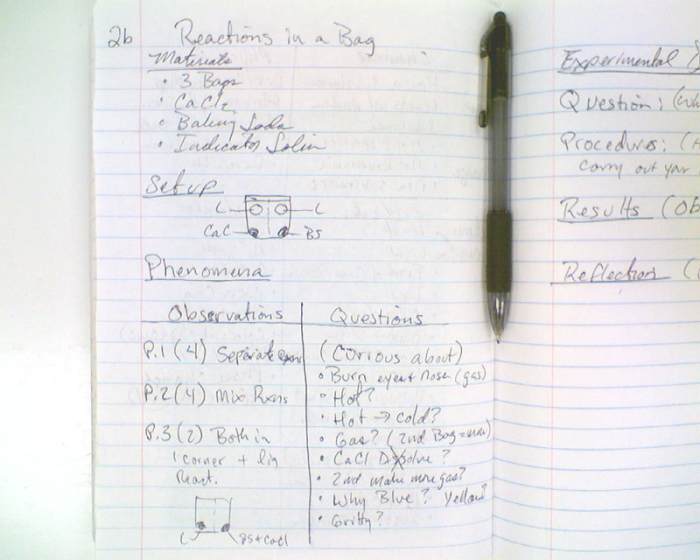 2b Reactions in a Bag
Materials
• 3 Bags
• CaCl2
• Baking Soda
• Indicator Soln
Set up
L L
CaC BS
Phenomena
Observations
P.1 (4) Separate
P.2 (4) Mix
P.3 (2) Both in
1 corner + liq
React.
L BS+CaCl
Questions
(Curious about)
• Burn eyes+ nose (gas)
• Hot?
• Hot → cold?
• Gas? (2nd Bag =
• CaCl Dissolve?
• 2nd make more gas?
• Why Blue? Yellow?
• Gritty?
Experimental
Question: (
Procedures: (
carry out your
Results (Ob
Reflection (